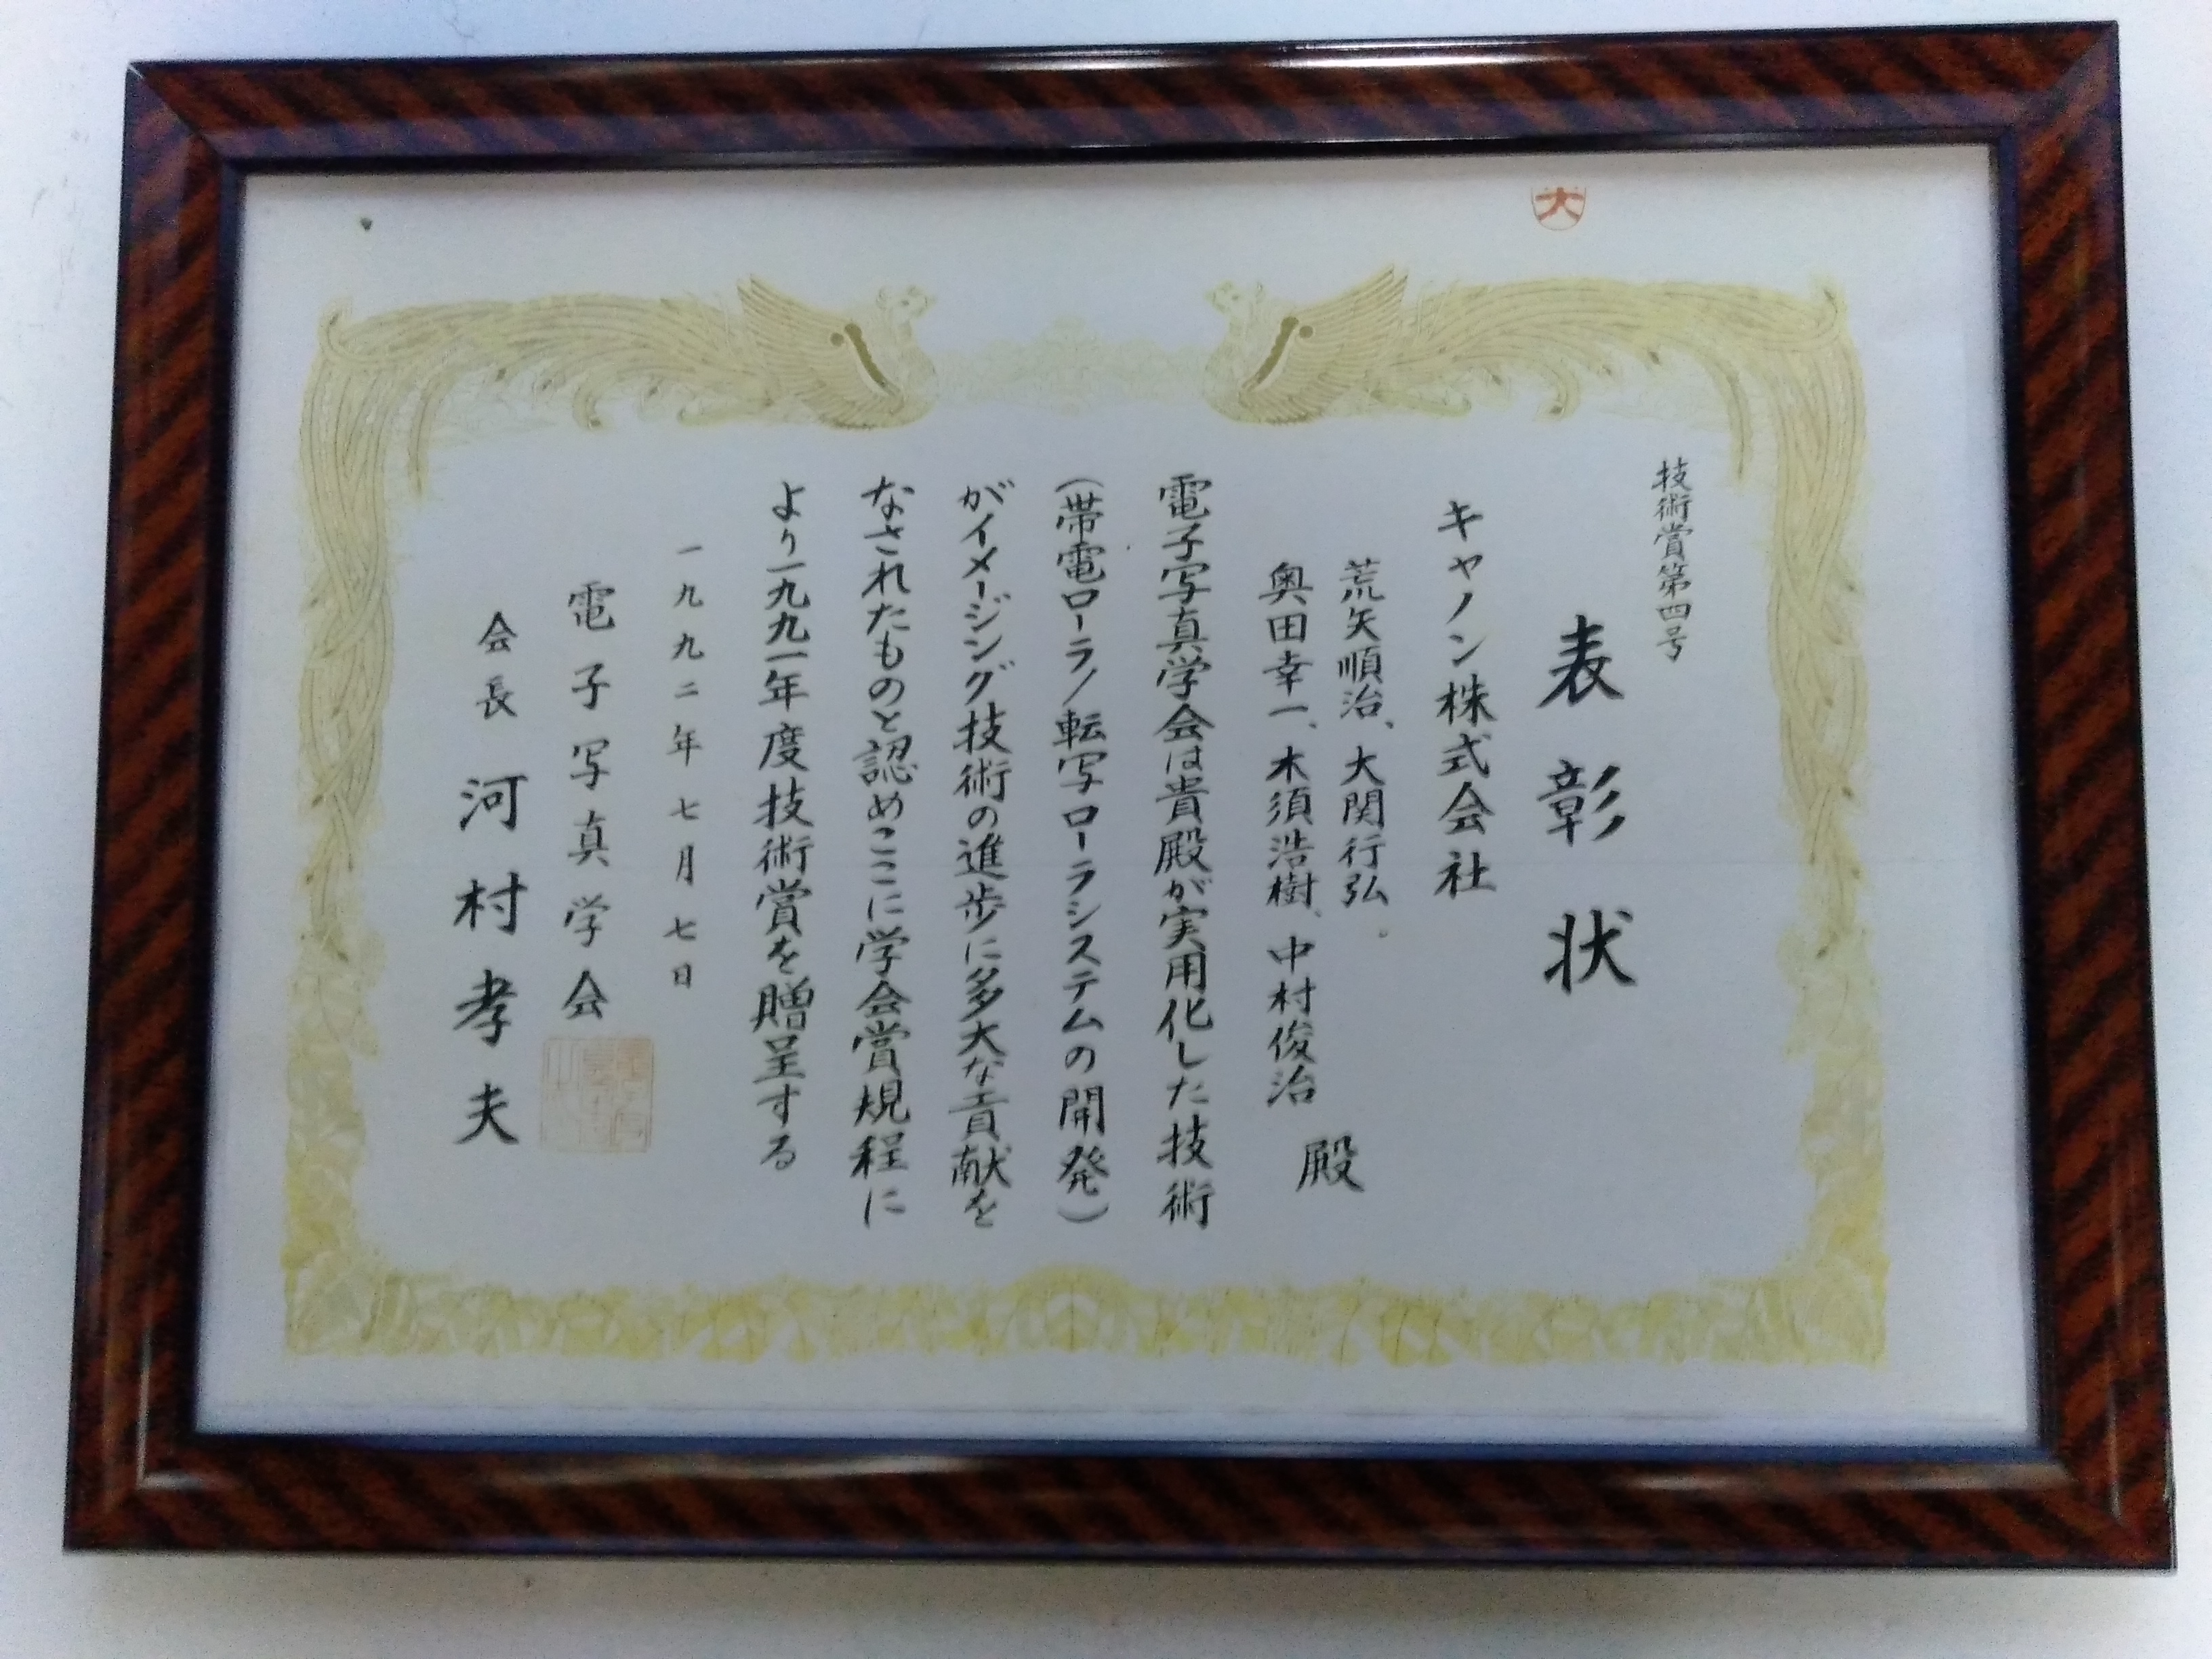 大
技術賞第四号
表彰状
キャノン株式会社
荒矢順治、大関行弘、
奥田幸一、木須浩樹、中村俊治
殿
電子写真学会は貴殿が実用化した技術
(帯電ローラ/転写ローラシステムの開発)
がイメージング技術の進歩に多大な貢献を
なされたものと認めここに学会賞規程に
より一九九一年度技術賞を贈呈する
一九九二年七月七日
電子写真学会
会長 河村孝夫